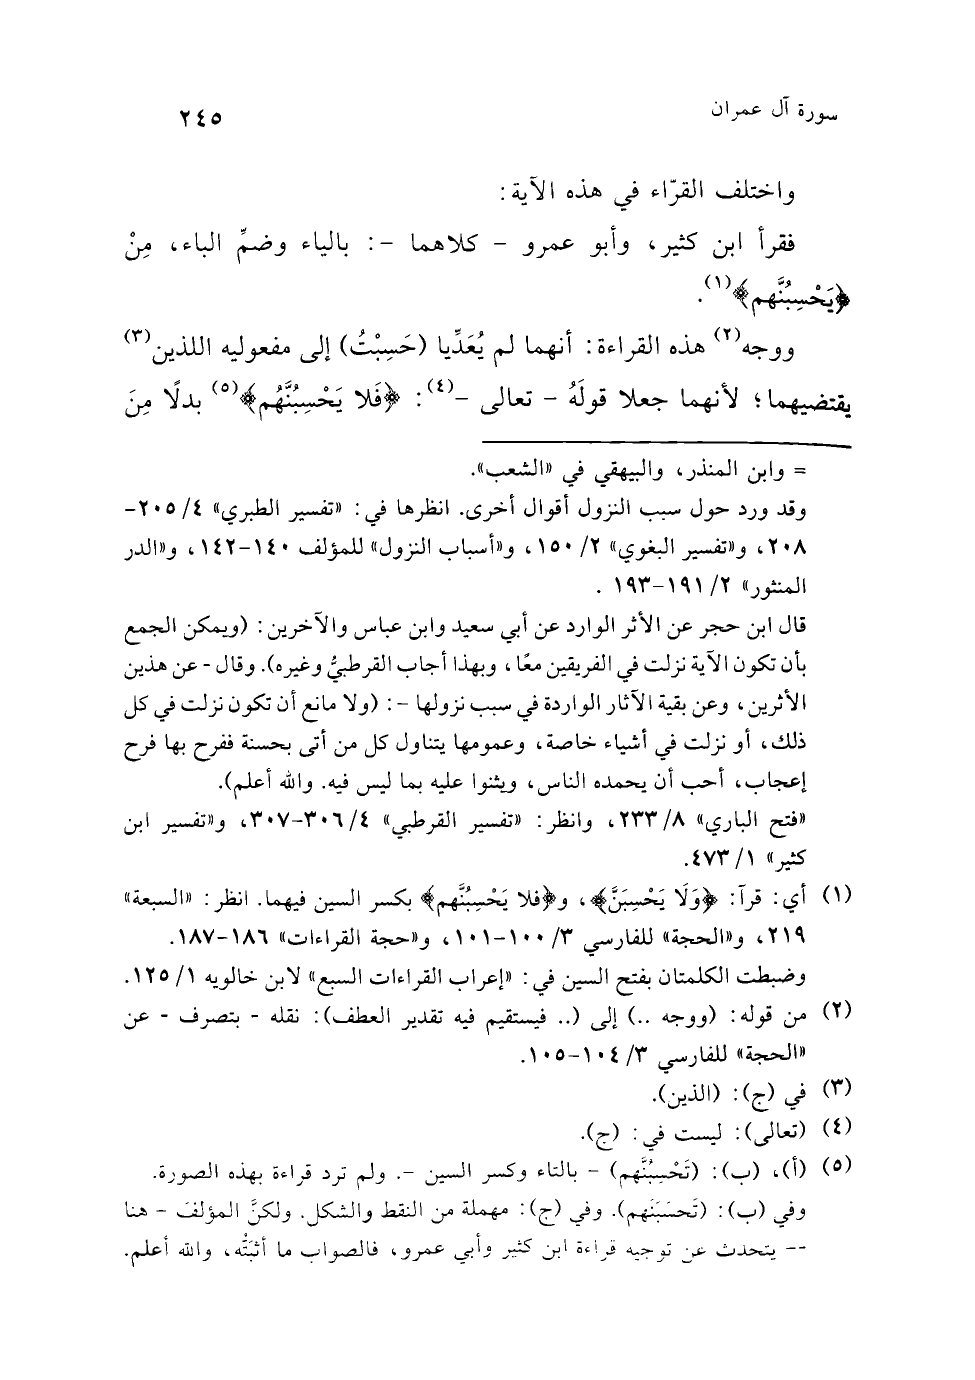 سورة آل عمران
٢٤٥
واختلف القرّاء في هذه الآية:
فقرأ ابن كثير، وأبو عمرو - كلاهما -: بالياء وضمِّ الباء، مِنْ
﴿يَحْسِبُنَّهم﴾(١).
ووجه(٢) هذه القراءة: أنهما لم يُعَدِّيا (حَسِبْتُ) إلى مفعوليه اللذين(٣)
يقتضيهما؛ لأنهما جعلا قولَهُ - تعالى -(٤): ﴿فَلا يَحْسِبُنَّهُم﴾(٥) بدلًا مِنَ
= وابن المنذر، والبيهقي في «الشعب».
وقد ورد حول سبب النزول أقوال أخرى. انظرها في: «تفسير الطبري» ٤/ ٢٠٥-
٢٠٨، و«تفسير البغوي» ٢/ ١٥٠، و«أسباب النزول» للمؤلف ١٤٠-١٤٢، و«الدر
المنثور» ٢/ ١٩١-١٩٣ .
قال ابن حجر عن الأثر الوارد عن أبي سعيد وابن عباس والآخرين: (ويمكن الجمع
بأن تكون الآية نزلت في الفريقين معًا، وبهذا أجاب القرطبيُّ وغيره). وقال - عن هذين
الأثرين، وعن بقية الآثار الواردة في سبب نزولها -: (ولا مانع أن تكون نزلت في كل
ذلك، أو نزلت في أشياء خاصة، وعمومها يتناول كل من أتى بحسنة ففرح بها فرح
إعجاب، أحب أن يحمده الناس، ويثنوا عليه بما ليس فيه. والله أعلم).
«فتح الباري» ٨/ ٢٣٣، وانظر: «تفسير القرطبي» ٤/ ٣٠٦-٣٠٧، و«تفسير ابن
كثير» ١/ ٤٧٣.
(١) أي: قرآ: ﴿وَلَا يَحْسِبَنَّ﴾، و﴿فلا يَحْسِبُنَّهم﴾ بكسر السين فيهما. انظر: «السبعة»
٢١٩، و«الحجة» للفارسي ٣/ ١٠٠-١٠١، و«حجة القراءات» ١٨٦-١٨٧.
وضبطت الكلمتان بفتح السين في: «إعراب القراءات السبع» لابن خالويه ١/ ١٢٥.
(٢) من قوله: (ووجه ..) إلى (.. فيستقيم فيه تقدير العطف): نقله - بتصرف - عن
«الحجة» للفارسي ٣/ ١٠٤-١٠٥.
(٣) في (ج): (الذين).
(٤) (تعالى): ليست في: (ج).
(٥) (أ)، (ب): (تَحْسِبُنَّهم) - بالتاء وكسر السين -. ولم ترد قراءة بهذه الصورة.
وفي (ب): (تَحسَبَنَهم). وفي (ج): مهملة من النقط والشكل. ولكنَّ المؤلفَ - هنا
-- يتحدث عن توجيه قراءة ابن كثير وأبي عمرو، فالصواب ما أثبتُّه، والله أعلم.